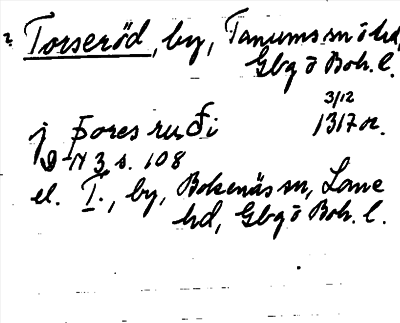 ? Torseröd, by, Tanums sn o hd,
Gbg o Boh. l.
3/12
j Þores ruði 1317 or.
DN 3 s. 108
el. T., by, Bokenäs sn, Lane
hd, Gbg o Boh. l.